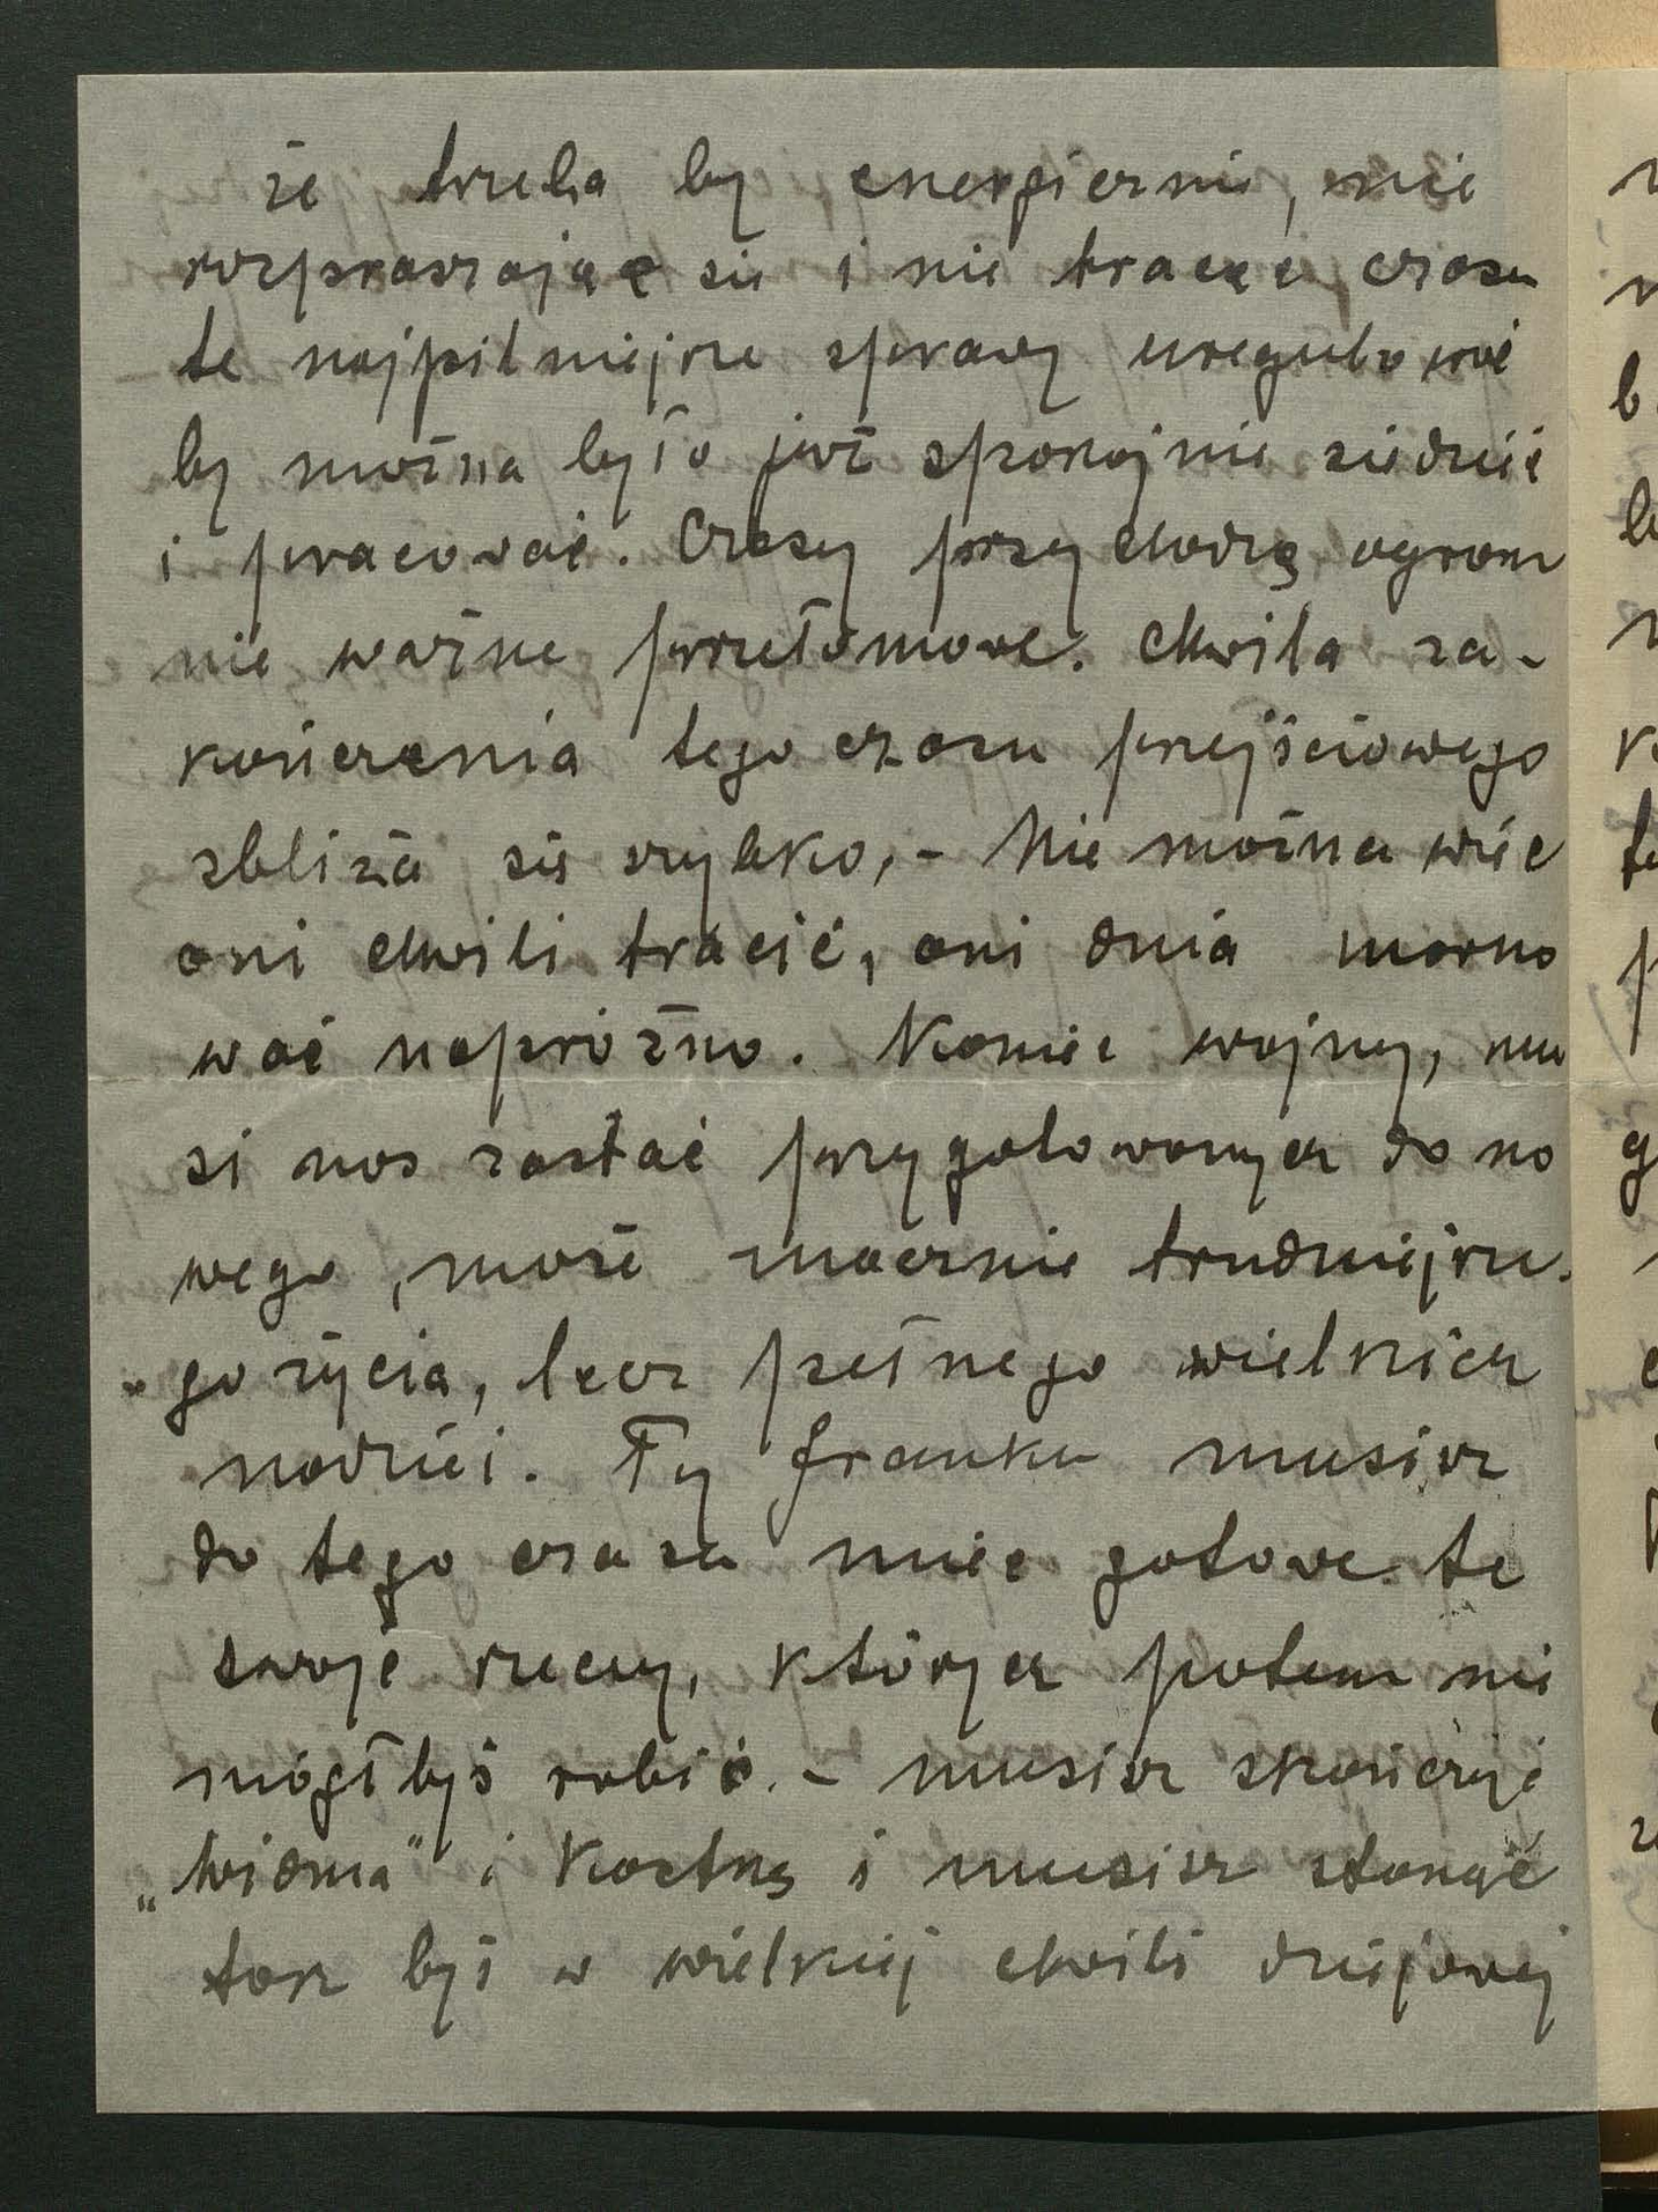 że trzeba by energicznie, nie
rozpraszając się i nie tracąc czasu
te najpilniejsze sprawy uregulować
by można było już spokojnie siedzieć
i pracować. Czasy przychodzą ogrom
nie ważne przełomowe. Chwila za-
kończenia tego czasu przejściowego
zbliża się szybko, - Nie można więc
ani chwili tracić, ani dnia marno
wać napróżno. Koniec wojny, mu
si nas zastać przygotowanych do no
wego, może znacznie trudniejsze-
go życia, lecz pełnego wielkich
nadziei. Ty Franku musisz
do tego czasu mieć gotowe te
swoje rzeczy, których potem nie
mógłbyś robić. - musisz skończyć
„Widma” i Kostkę i musisz stanąć
tak byś w wielkiej chwili dziejowej